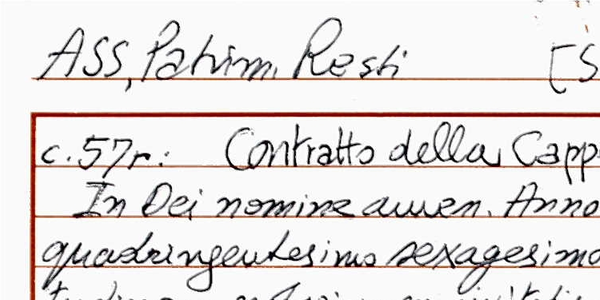 ASS, Patrim. Resti [S
c. 57r: Contratto della Capp
In Dei nomine amen. Anno
quadringentesimo sexagesimo